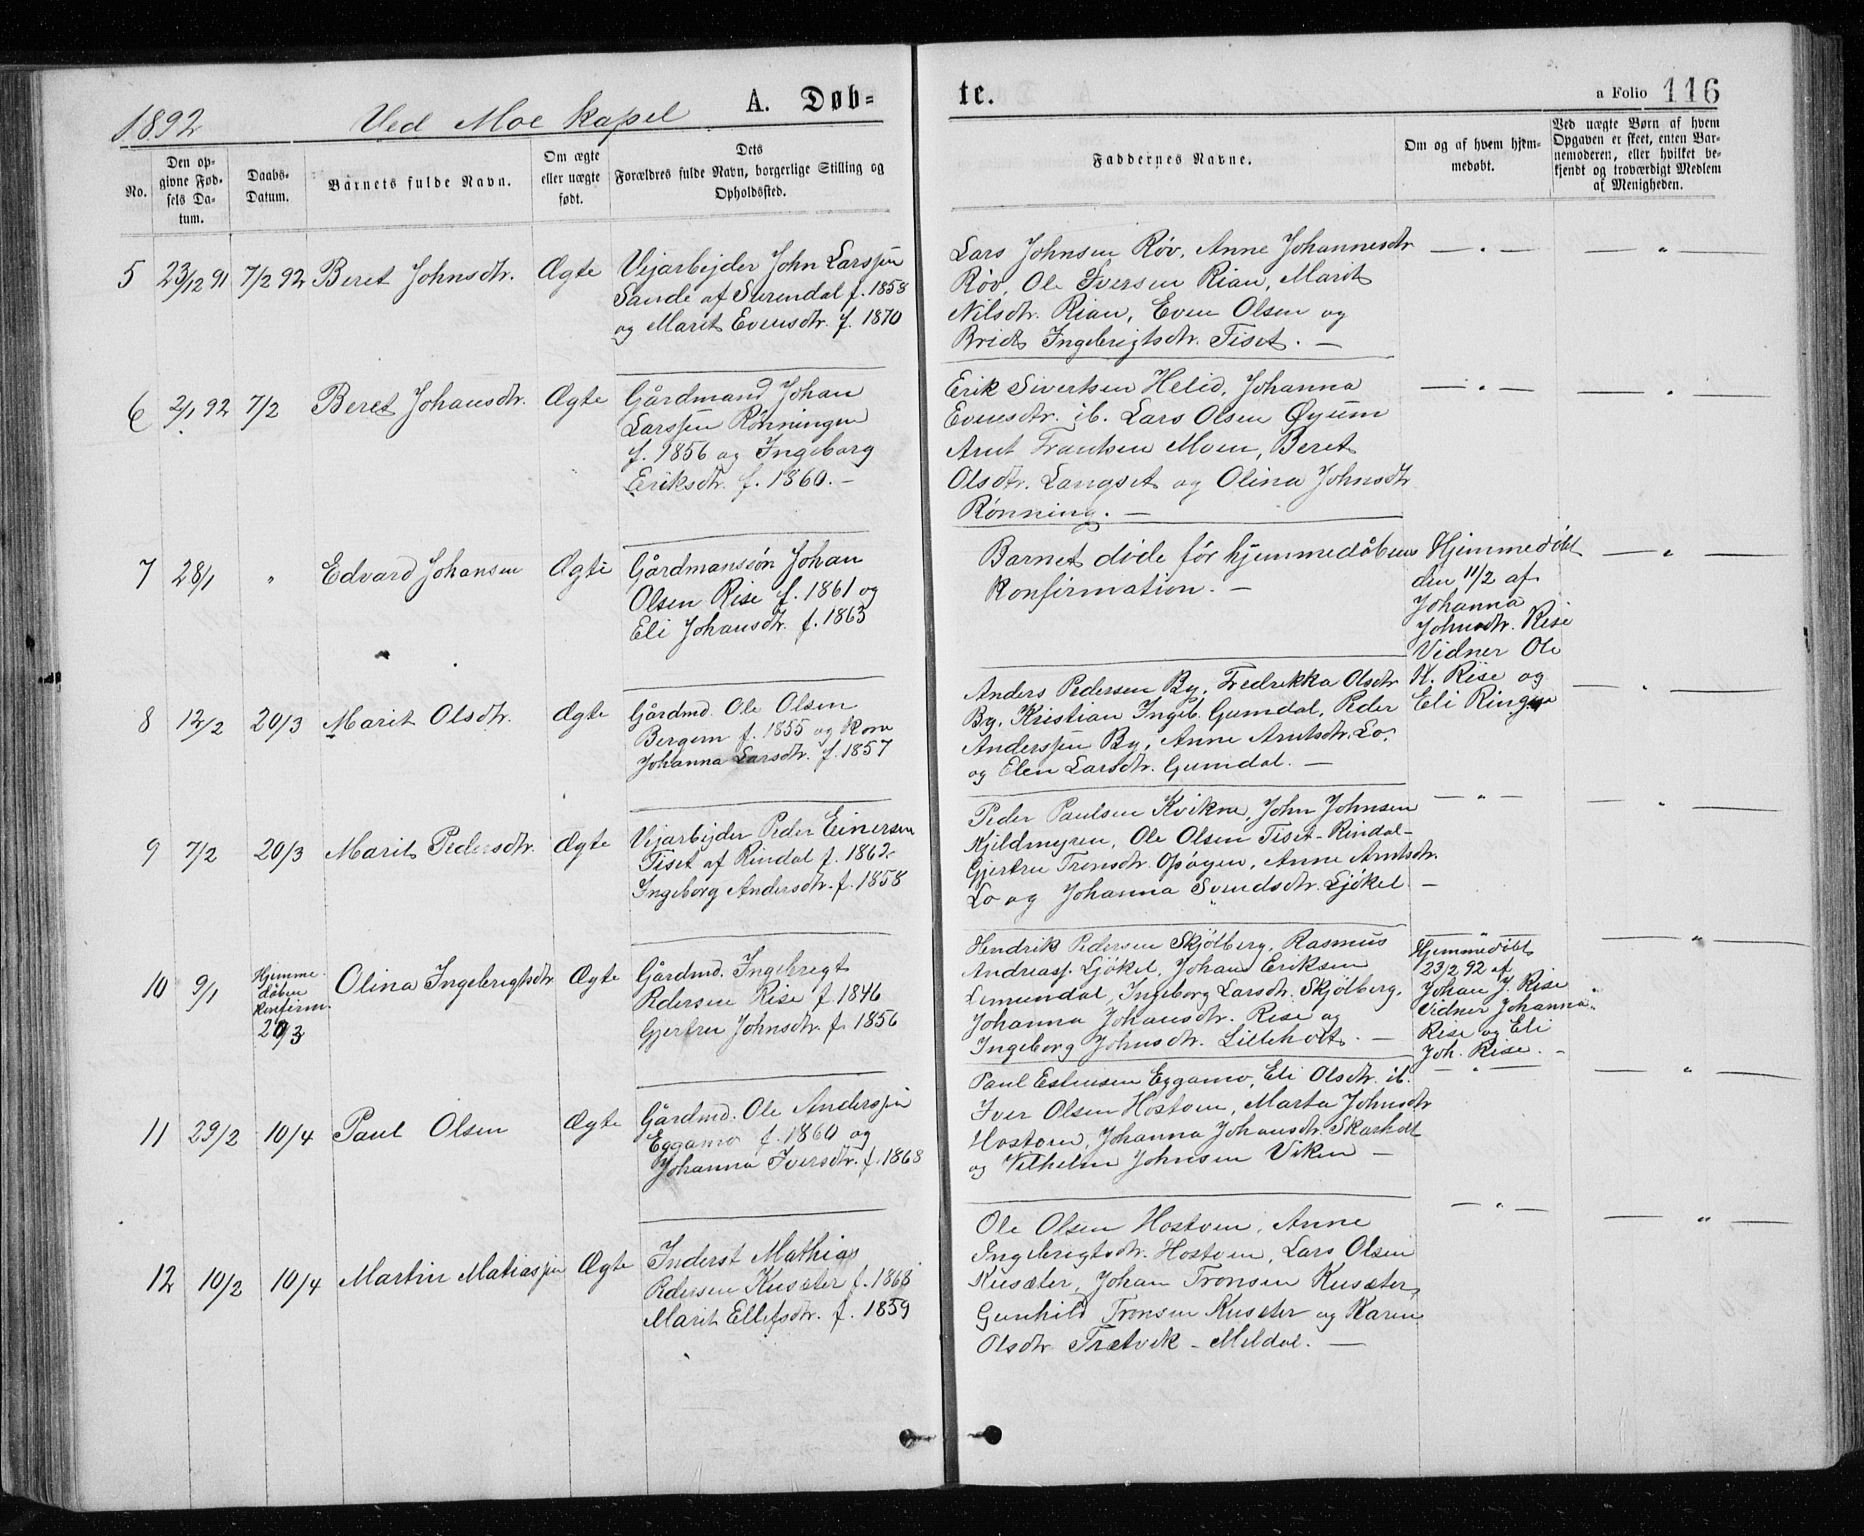 1892 Ved Moe kapel A. Døb= te. a Folio 116
No.
Den op-
givne Fød-
sels Da-
tum.
Daabs-
Datum.
Barnets fulde Navn.
Om ægte
eller uægte
født.
Dets
Forældres fulde Navn, borgerlige Stilling og
Opholdssted.
Faddernes Navne.
Om og af hvem hjem-
medøbt.
Ved uægte Børn af hvem
Opgaven er skeet, enten Bar-
nemoderen, eller hvilket be-
kjendt og troværdigt Medlem
af Menigheden.
5 23/12 91 7/2 92 Beret Johnsdtr. Ægte
Vejarbejder John Larssen
Sande af Surendal f. 1858
og Marit Evensdtr. f. 1870
Lars Johnsen Røv, Anne Johannesdtr
Røv, Ole Iversen Rian, Marit
Nilsdtr. Rian, Even Olsen og
Bridt Ingebrigtsdtr. Tiset. —
— " —
— " —
6 2/1 92 7/2 Beret Johansdtr. Ægte
Gårdmand Johan
Larssen Rønningen
f. 1856 og Ingeborg
Eriksdtr. f. 1860. —
Erik Sivertsen Helid, Johanna
Evensdtr. ib. Lars Olsen Øyum
Arnt Frantsen Moen, Beret
Olsdtr. Langset og Olina Johnsdtr
Rønning. —
— " —
— " —
7 28/1 " Edvard Johansen Ægte
Gårdmansøn Johan
Olsen Rise f. 1861 og
Eli Johansdtr. f. 1863
Barnet døde før hjemmedåbens
konfirmation. —
Hjemmedöbt
den 11/2 af
Johanna
Johnsdtr. Rise
Vidner Ole
K. Rise og
Eli Ringen
— " —
8 12/2 20/3 Marit Olsdtr. Ægte
Gårdmd. Ole Olsen
Bergem f. 1855 og kone
Johanna Larsdtr. f. 1857
Anders Pedersen By, Fredrikka Olsdtr
By, Kristian Ingeb. Gumdal, Peder
Anderssen By, Anne Arntsdtr. Lo,
og Elen Larsdtr. Gumdal. —
— " —
9 7/2 20/3 Marit Pedersdtr. Ægte
Vejarbejder Peder Einersen
Tiset af Rindal f. 1862
Ingeborg Andersdtr. f. 1858
Peder Paulsen Kvikne, John Johnsen
Kjildmyren, Ole Olsen Tiset - Rindal -
Gjertru Tronsdtr. Opøyen, Anne Arntsdtr.
Lo og Johanna Svendsdtr. Ljøkel —
— " —
— " —
10 9/1
Hjemme-
døben
konfirm.
20/3
Olina Ingebrigtsdtr Ægte
Gårdmd. Ingebrigt
Pedersen Rise f. 1846
Gjertru Johnsdtr. f. 1856
Hendrik Pedersen Skjølberg, Rasmus
Andreass. Ljøkel, Johan Eriksen
Lemundal, Ingeborg Larsdtr. Skjølberg,
Johanna Johansdtr. Rise og
Ingeborg Johnsdtr. Lilleholt. —
Hjemmedöbt
23/2 92 af
Johan J. Rise
Vidner Johanna
Rise og Eli
Joh. Rise. —
— " —
11 29/2 10/4 Paul Olsen Ægte
Gårdmd. Ole Anderssen
Eggamo f. 1860 og
Johanna Iversdtr. f. 1868
Paul Estensen Eggamo, Eli Olsdtr. ib.
Iver Olsen Hostoen, Marta Johnsdtr
Hostoen, Johanna Johansdtr. Skarholt
og Vilhelm Johnsen Viken —
— " —
— " —
12 10/2 10/4 Martin Matiassen Ægte
Inderst Mathias
Pedersen Kusæter f. 1868
Marit Ellefsdtr. f. 1859
Ole Olsen Hostoen, Anne
Ingebrigtsdtr. Hostoen, Lars Olsen
Kusæter, Johan Tronsen Kusæter,
Gunhild Tronsen Kusæter og Karen
Olsdtr Trætvik - Meldal. —
— " —
— " —